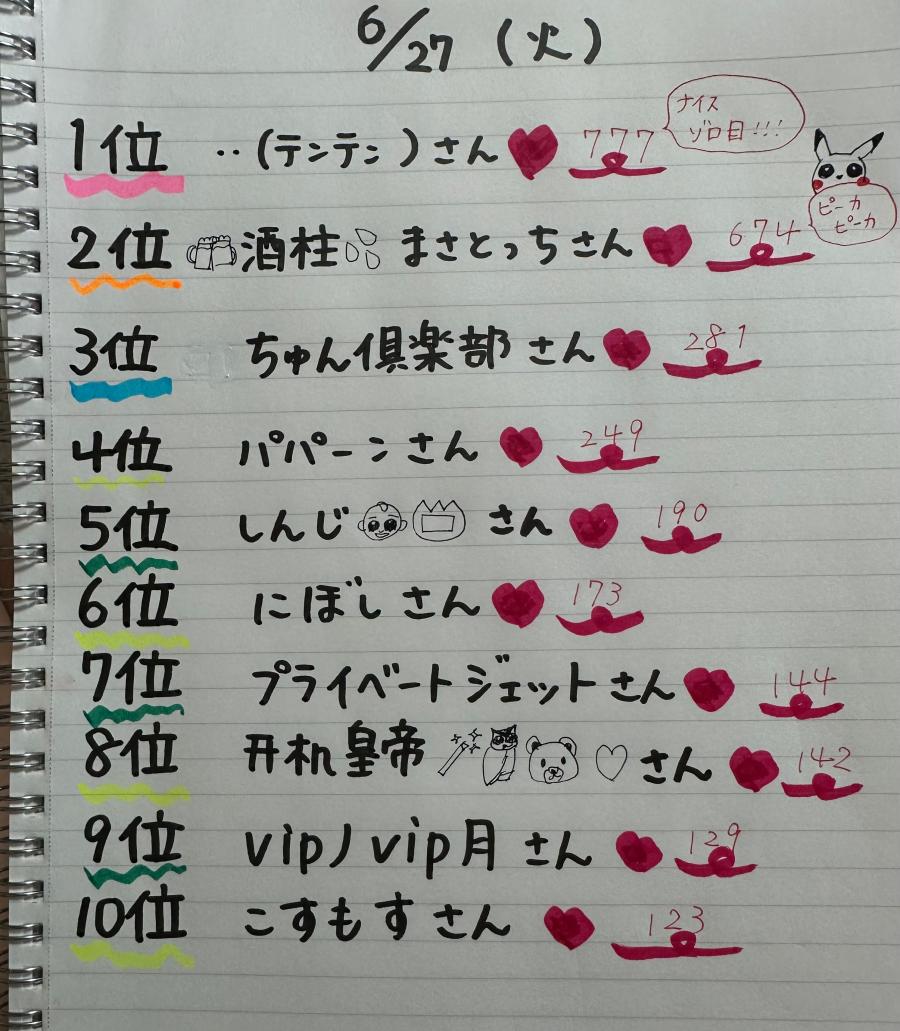 6/27 (火)
1位 ‥(テンテン)さん 777
ナイス
ゾロ目!!!
2位 酒柱 まさとっちさん 674
ピーカ
ピーカ
3位 ちゅん倶楽部 さん 281
4位 パパーンさん 249
5位 しんじ さん 190
6位 にぼしさん 173
7位 プライベートジェットさん 144
8位 开机皇帝 さん 142
9位 vipノvip月 さん 129
10位 こすもすさん 123